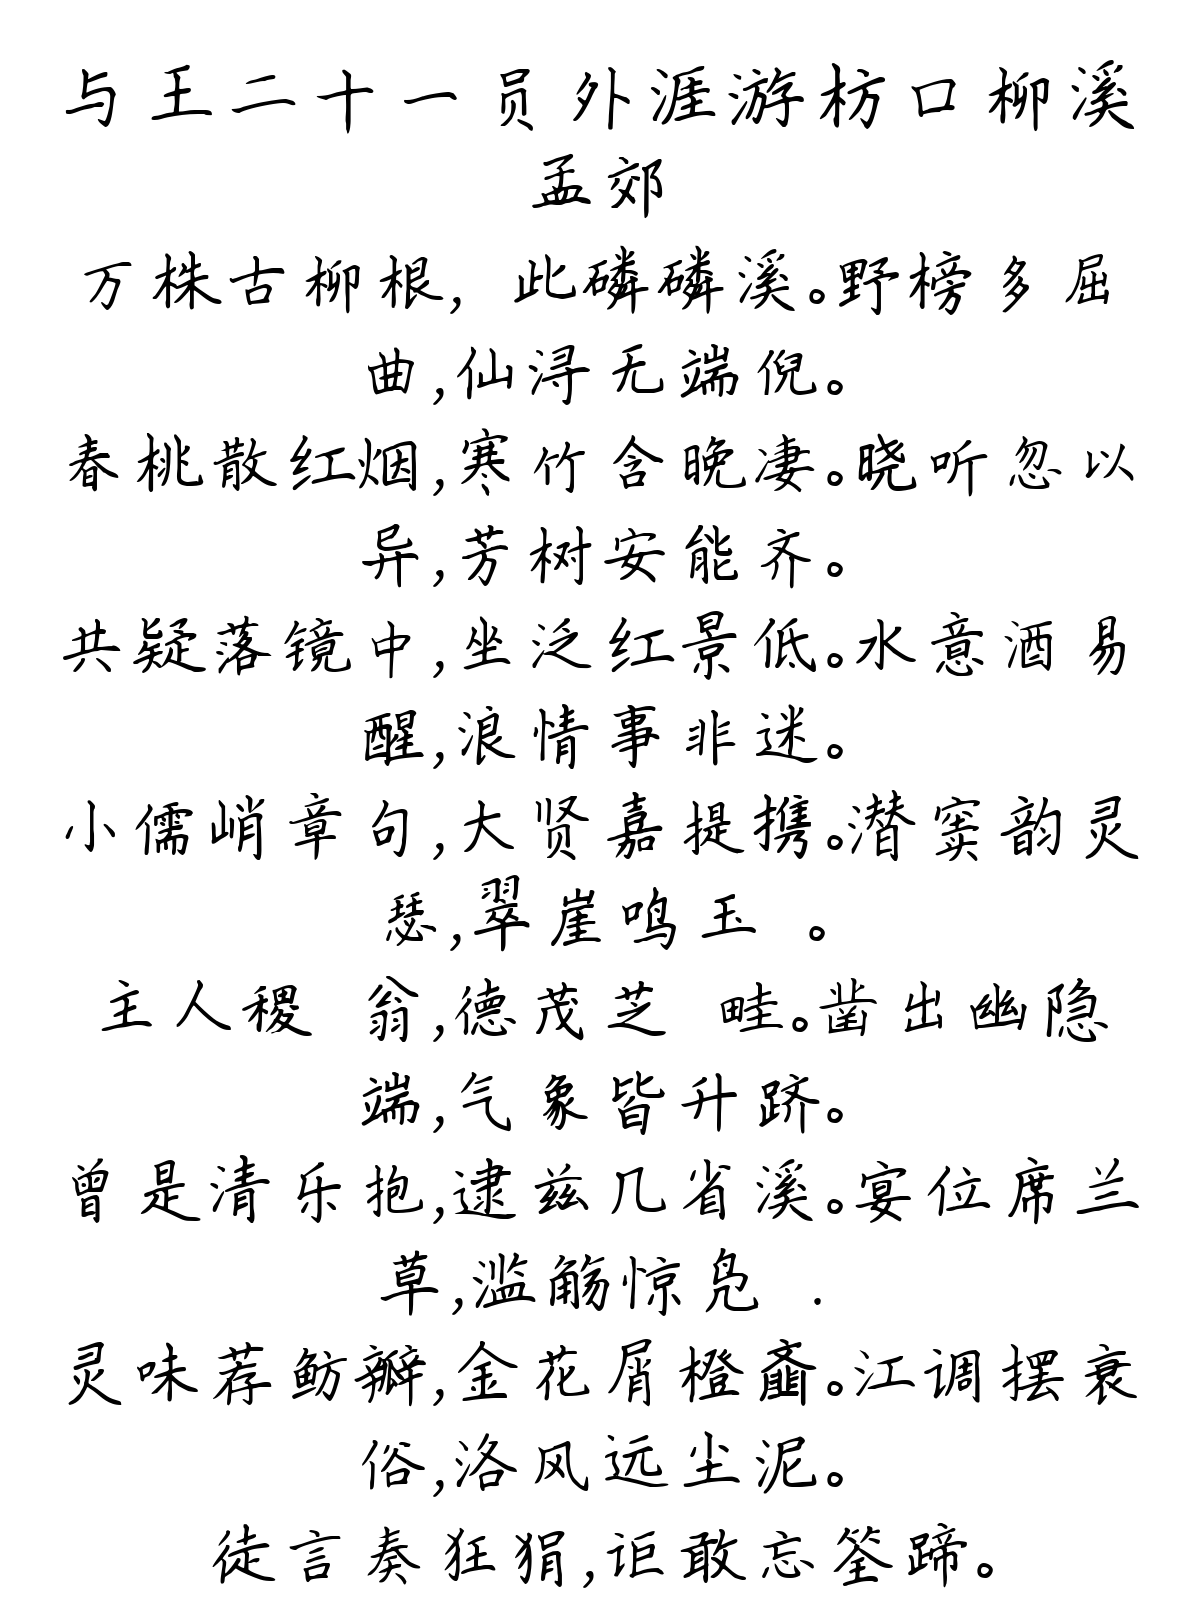 与王二十一员外涯游枋口柳溪
孟郊
万株古柳根，此磷磷溪。野榜多屈
曲，仙浔无端倪。
春桃散红烟，寒竹含晚凄。晓听忽以
异，芳树安能齐。
共疑落镜中，坐泛红景低。水意酒易
醒，浪情事非迷。
小儒峭章句，大贤嘉提携。潜窦韵灵
瑟，翠崖鸣玉 。
主人稷 翁，德茂芝 畦。凿出幽隐
端，气象皆升跻。
曾是清乐抱，逮兹几省溪。宴位席兰
草，滥觞惊凫 .
灵味荐鲂瓣，金花屑橙齑。江调摆衰
俗，洛风远尘泥。
徒言奏狂狷，讵敢忘筌蹄。